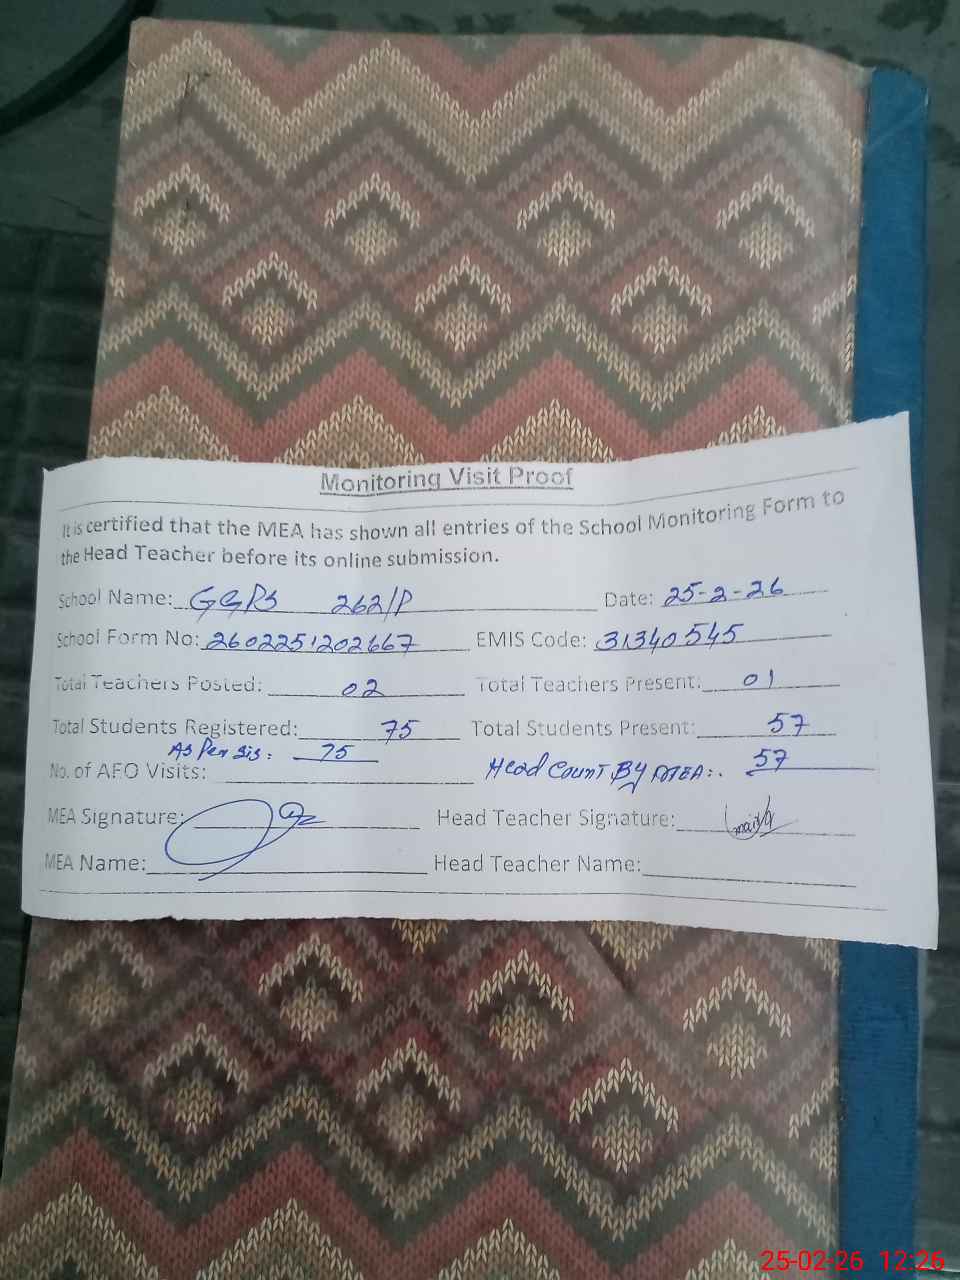 Monitoring Visit Proof
It is certified that the MEA has shown all entries of the School Monitoring Form to
the Head Teacher before its online submission.
School Name: GGPS 262/P Date: 25-2-26
School Form No: 2602251202667 EMIS Code: 31340545
Total Teachers Posted: 02 Total Teachers Present: 01
Total Students Registered: 75 Total Students Present: 57
As Per SIS: 75
No. of AFO Visits: Head Count By MEA:. 57
MEA Signature: Head Teacher Signature:
MEA Name: Head Teacher Name:
25-02-26 12:26